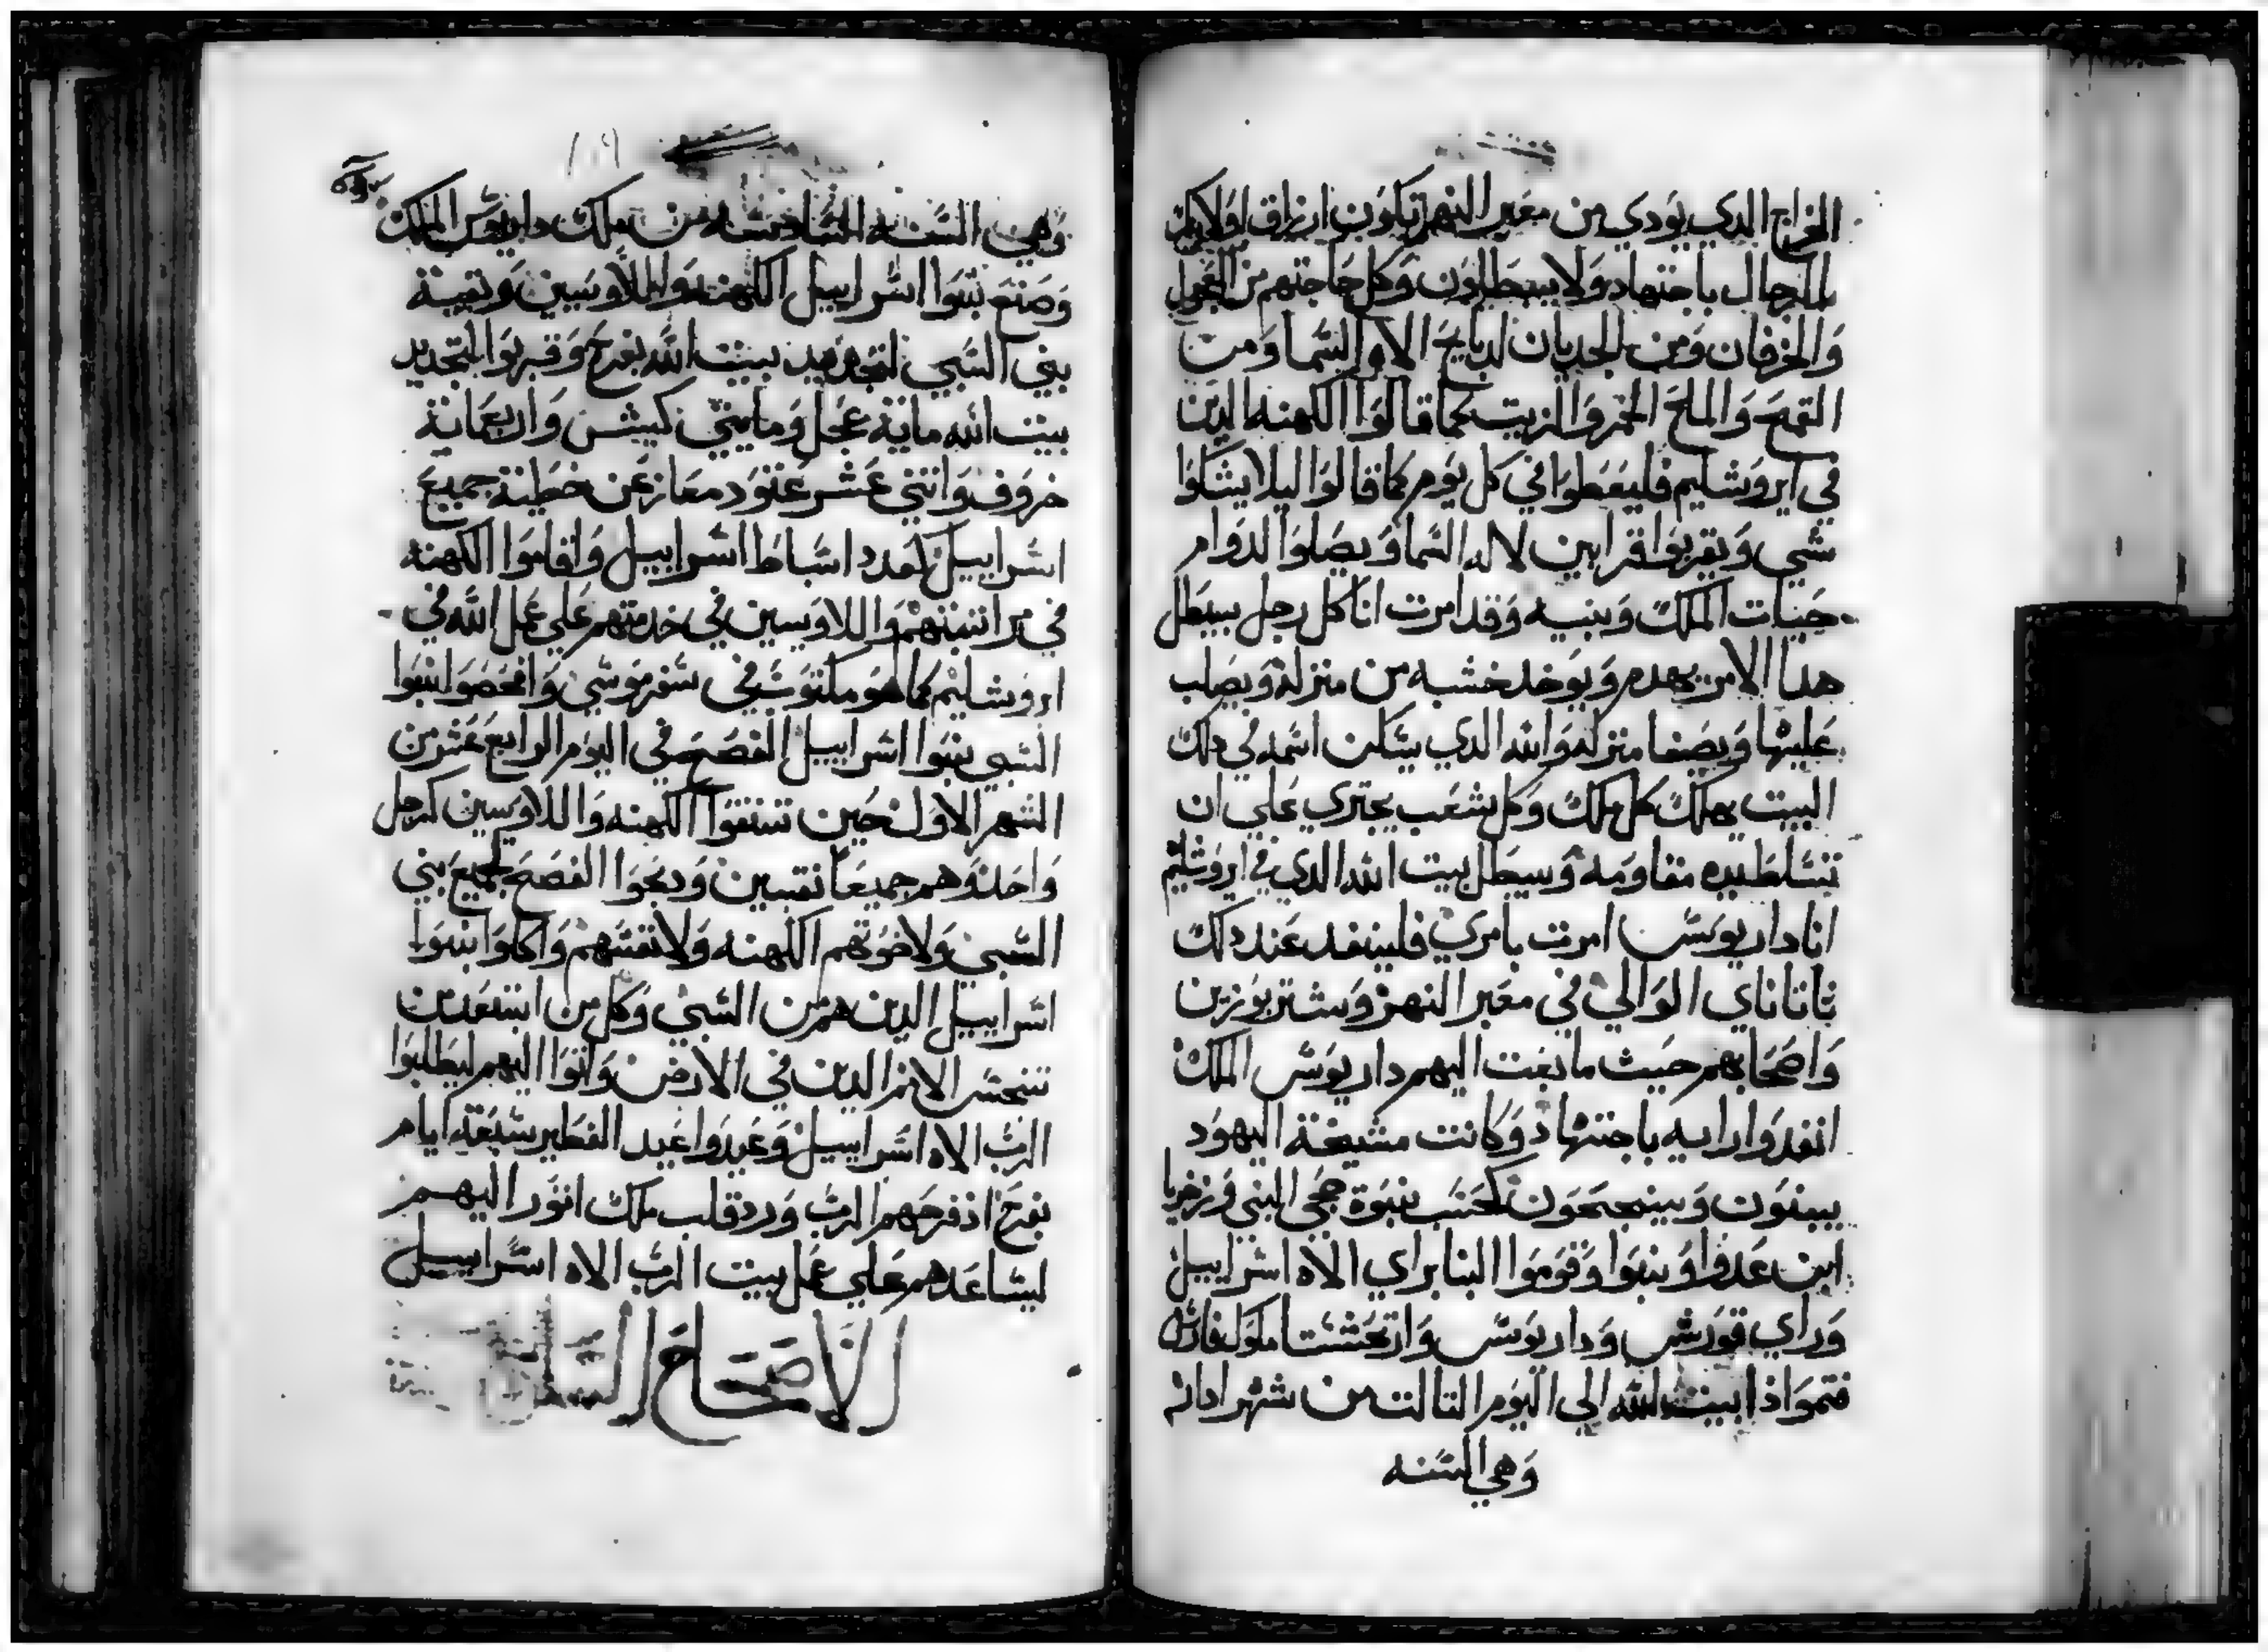 الخراج الدي يودي من معبر النهر تكون ارزاق اولايك
الرجال باجتهاد ولا يبطلون وكل حاجتهم من العجول
والخرفان ومن الجديان لدبايح الاه السما ومن
القمح والملح الخمر والزيت كما قالوا الكهنه الدين
في ايروشليم فليعطوا في كل يوم كما قالوا ليلا يشكوا
شي ويقربوا قرابين لاله السما ويصلوا لدوام
حيات الملك وبنيه وقد امرت انا كل رجل يبطل
هدا الامر يهدم ويوخد خشبه من منزله ويصلب
عليها ويصفا منزله والله الدي يسكن اسمه في دلك
البيت يهلك كل ملك وكل شعب يجتري علي ان
تتسلط يده مقاومه وسيطل بيت الله الدي في ايروشليم
انا داريوس امرت بامري فلينفد عند دلك
تاتاناي الوالي في معبر النهر وشتربوزين
واصحابهم حيث ما بعت اليهم داريوس الملك
انفدوا رايه باجتهاد وكانت مشيخة اليهود
يبنون وينجحون كحسب نبوة حجي النبي وزخريا
ابن عدوا وبنوا وقوموا البنا براي الاه اسراييل
وراي قورش وداريوس وارتحششتا ملوك فارس
فتموا ذا بيت الله الي اليوم التالت من شهر ادار
وهي السنه
109
وهي السنه السادسه من ملك داريوس الملك
وصنع بنوا اسراييل الكهنه واللاويين وبقية
بني السبي لتجديد بيت الله بفرح وقربوا لتجديد
بيت الله ماية عجل ومايتي كبش واربعماية
خروف واتني عشر عتود معاز عن خطية جميع
اسراييل كعدد اسباط اسراييل واقاموا الكهنه
في مراتبهم واللاويين في خدمتهم علي عمل الله في
ايروشليم كما هو مكتوب في سفر موسي وافحصوا بنوا
السبي بنوا اسراييل الفصح في اليوم الرابع عشر من
الشهر الاول حين تنقوا الكهنه واللاويين كرجل
واحد وهم جميعا نقيين ودبحوا الفصح لجميع بني
السبي ولاخوتهم الكهنه ولانفسهم واكلوا بنوا
اسراييل الدين هم من السبي وكل من ابتعد من
تنجس الامم الدين في الارض واتوا اليهم ليطلبوا
الرب الاه اسراييل وعيدوا عيد الفطير سبعة ايام
بفرح اذ فرحهم الرب ورد قلب ملك اتور اليهم
ليساعدهم علي عمل بيت الرب الاه اسراييل
الاصحاح